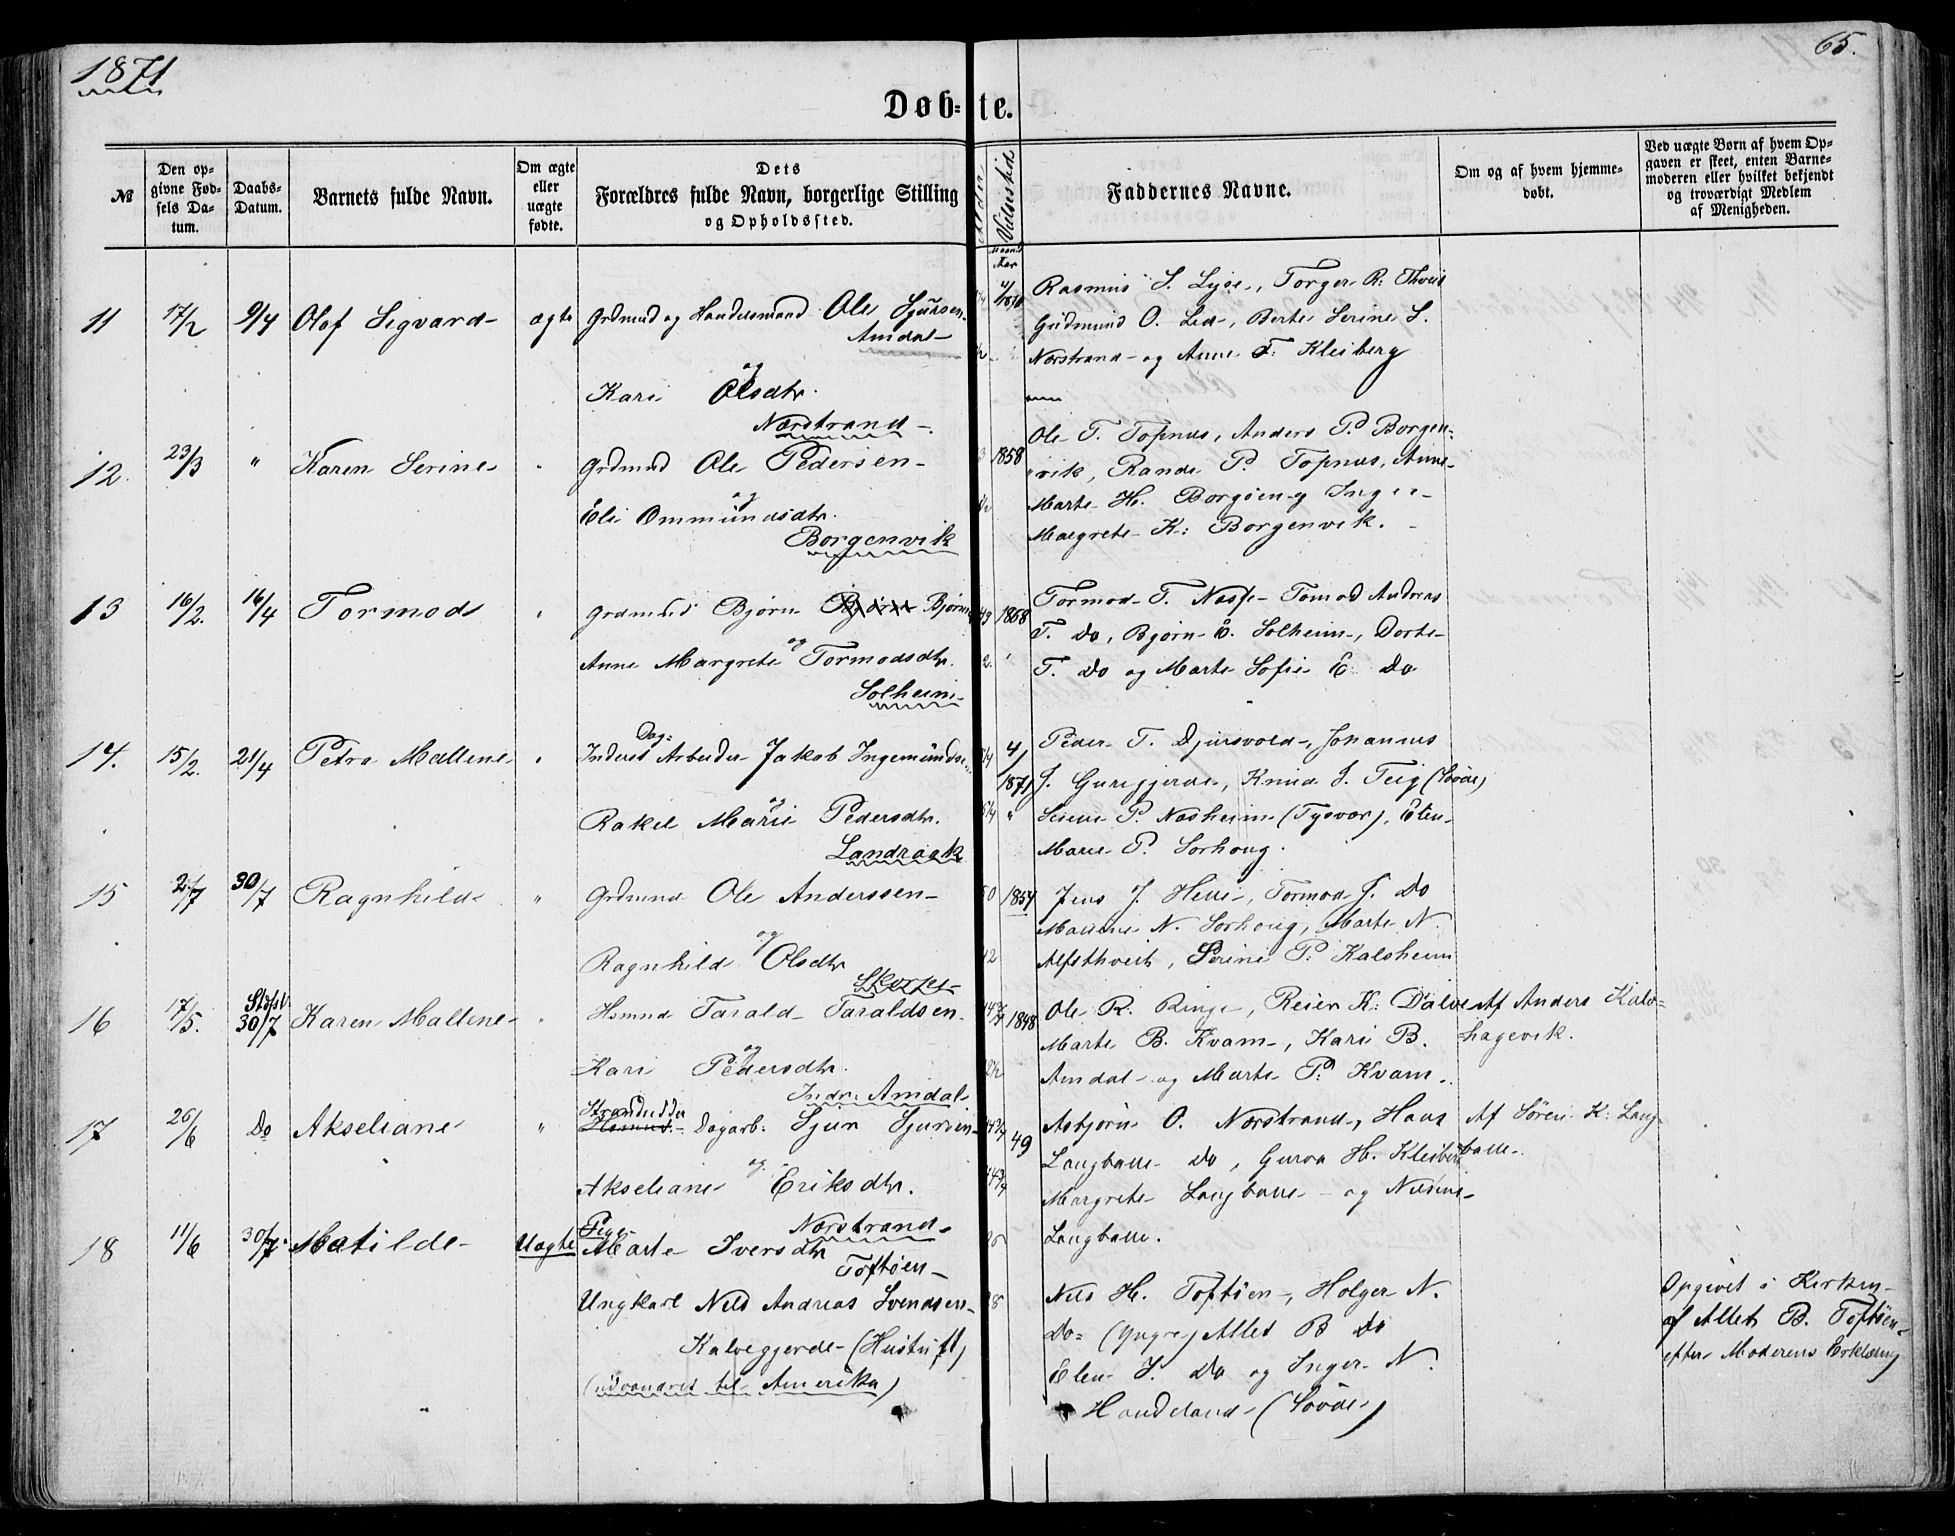 1871
65.
Døb-te.
№
Den opgivne Fødsels Datum.
Daabs-Datum.
Barnets fulde Navn.
Om ægte eller uægte fødte.
Dets Forældres fulde Navn, borgerlige Stilling og Opholdssted.
Alder
Vielsestid
Faddernes Navne.
Om og af hvem hjemmedøbt.
Ved uægte Børn af hvem Opgaven er skeet, enten Barnemoderen eller hvilket bekjendt og troværdigt Medlem af Menigheden.
11 17/2 9/4 Olof Sigvard ægte Grdmnd og Handelsmand Ole Sjursen
Amdal
og
Kari Olsdtr.
Nærstrand
4/1870
Rasmus S. Lyse, Torger R. Thveit
Gudmund O. Lid, Berte Serine S.
Norstrand og Anne T. Kleiberg
12. 23/3 " Karen Serine " Grdmnd Ole Pedersen
og
Eli Ommundsdtr.
Borgenvik
1858
Ole T. Topnes, Anders P. Borgen-
vik, Rande P. Topnes, Anne
Marte H. Borgøen og Inger
Margrete K: Borgenvik.
13 16/2. 16/4 Tormod " Grdmnd Bjørn Bjørn Bjørns
og
Anne Margrete Tormodsdtr.
Solheim
1868
Tormod T. Næsse Tomod Andreas
T. Do, Bjørn E. Solheim, Dorte
T. Do og Marte Sofie E. Do
14. 15/2. 21/4 Petra Mallene " Inderst Dag: Arbeider Jakob Ingemundsen
og
Rakel Marie Pedersdtr.
Landraak
4/1871
Peder T. Djursvold, Johannes
J. Guregjerde, Knud J. Teig (Sövde)
Serine P. Næsheim (Tysvær), Elen
Marie P. Sorhoug.
15 2/7 30/7 Ragnhild " Grdmnd Ole Anderssen
og
Ragnhild Olsdtr
1854
Jens J. Helle, Tormod J. Do
Marine N. Sorhoug, Marte N.
Alfsthveit, Serine P: Kalsheim
16 17/5. Stdfst. 30/7 Karen Mallene " Hsmnd Tarald Taraldsen
og
Kari Pedersdtr.
Indre Amdal
1848
Ole R. Ringe, Reier K: Dalve
Marte B. Kvam, Kari B.
Amdal og Marte P: Kvam.
Af Anders Kalv-
hagevik.
17 26/6 Do Akseliane " Strandsidder Hsmnd. Dagarb: Sjur Sjursen
og
Akseliane Eriksdtr.
Nærstrand
49
Asbjørn O. Nærstrand, Hans
Langballe Do, Gurva H. Kleiberg
Margrete Langballe og Nilsine
Langballe.
Af Søren K: Lang-
balle.
18 11/6 30/7. Matilde Uægte Pige
Marte Iversdtr
Toftøen
Ungkarl Nils Andreas Svendsen
Kalvegjerde (Hustuft)
(udvandret til Amerika)
Nils H. Toftøen, Holger N.
Do (Yngre) Allet B Do
Elen J. Do og Inger N.
Handeland (Sövde)
Opgivet i Kirken
af Allet B. Toftøen
efter Moderens Erklæring